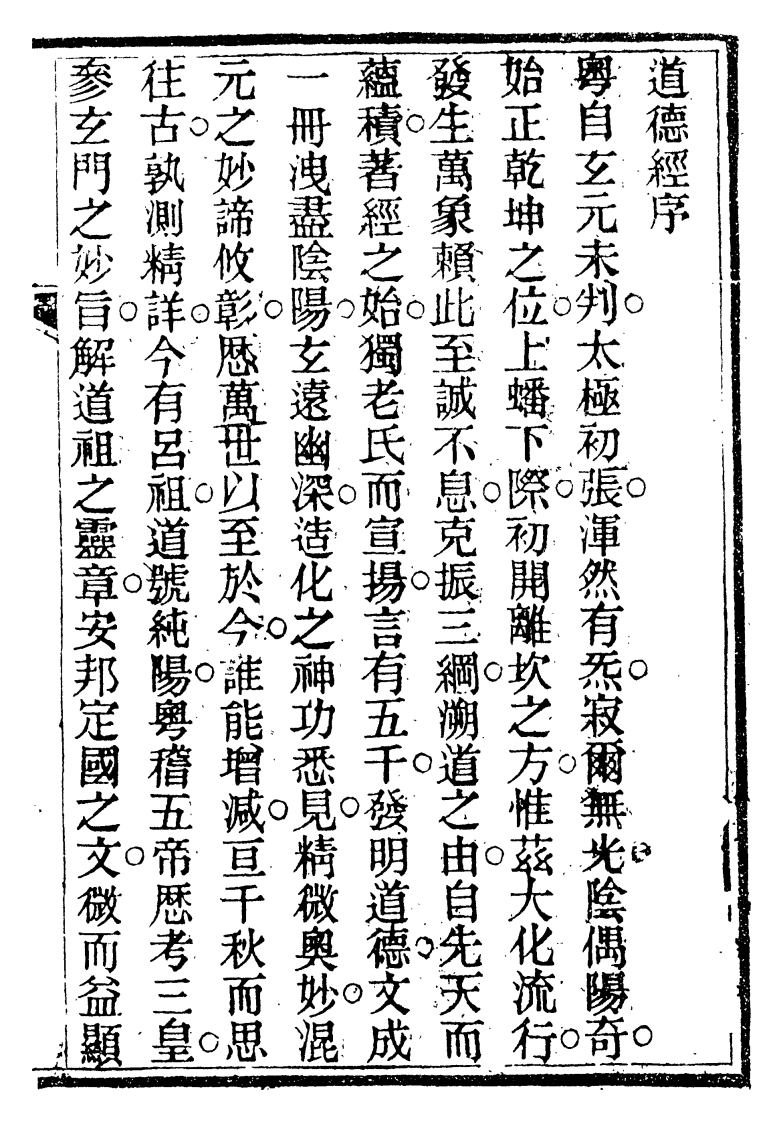 道德經序
粵自玄元未判○太極初張○渾然有炁○寂爾無光○陰偶陽奇○
始正乾坤之位○上蟠下際○初開離坎之方○惟茲大化流行○
發生萬象賴此至誠不息○克振三綱○溯道之由○自先天而
蘊積○著經之始○獨老氏而宣揚○言有五千○發明道德○文成
一冊○洩盡陰陽○玄遠幽深○造化之神功悉見○精微奧妙○混
元之妙諦攸彰○歷萬世以至於今○誰能增減○亘千秋而思
往古○孰測精詳○今有呂祖○道號純陽○粵稽五帝歷考三皇○
參玄門之妙旨○解道祖之靈章○安邦定國之文○微而益顯